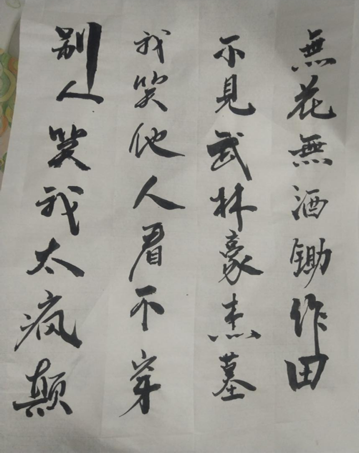 别人笑我太瘋顛
我笑他人看不穿
不見武林豪杰墓
無花無酒鋤作田